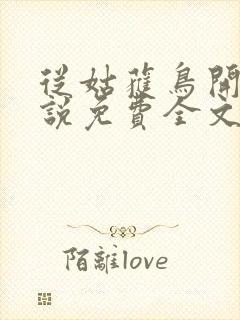 從姑獲鳥開
說免費全文
陌離love